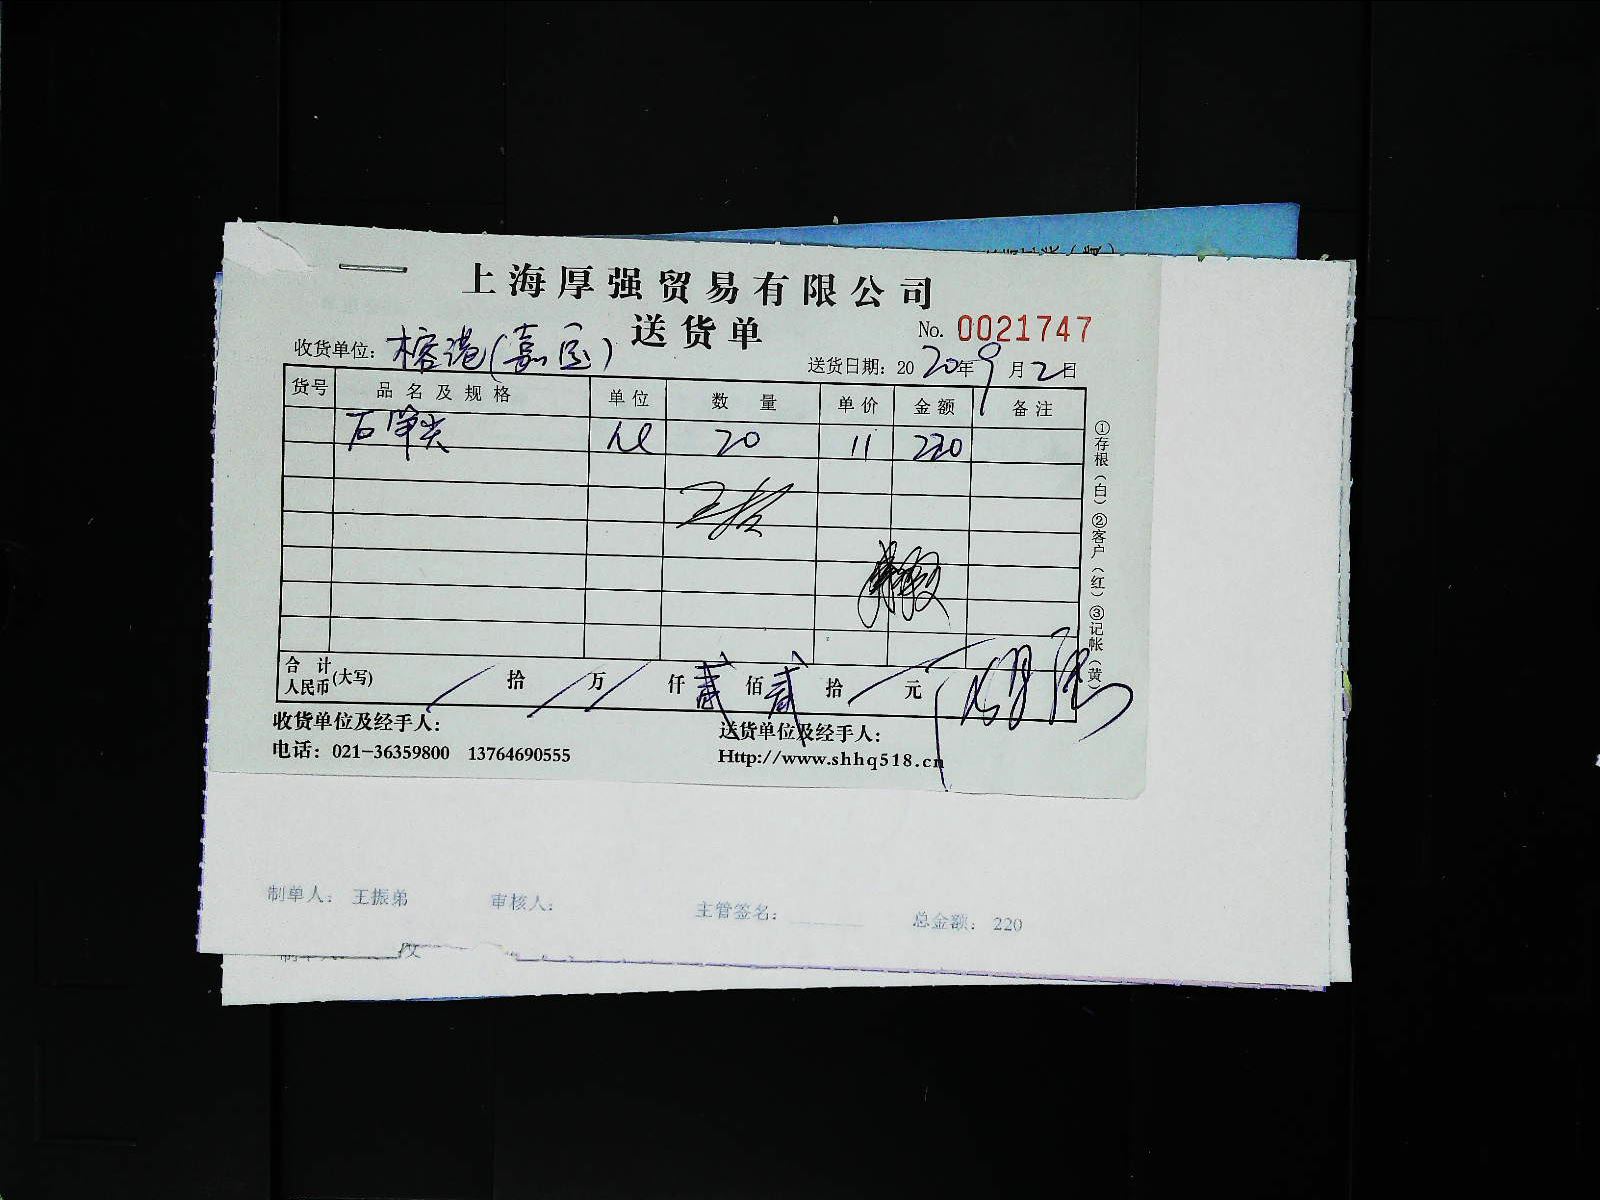 上海厚强贸易有限公司
送货单
No. 0021747
收货单位：榕港(嘉定)
送货日期：2020年9月2日
货号 品名及规格 单位 数量 单价 金额 备注
石笋尖 20 11 220
合计人民币(大写) / 拾 / 万 / 仟 贰 佰 贰 拾 / 元
①存根（白）②客户（红）③记帐（黄）
收货单位及经手人：
送货单位及经手人：
电话：021-36359800 13764690555
Http://www.shhq518.cn
制单人： 王振弟 审核人： 主管签名： 总金额： 220
制单人